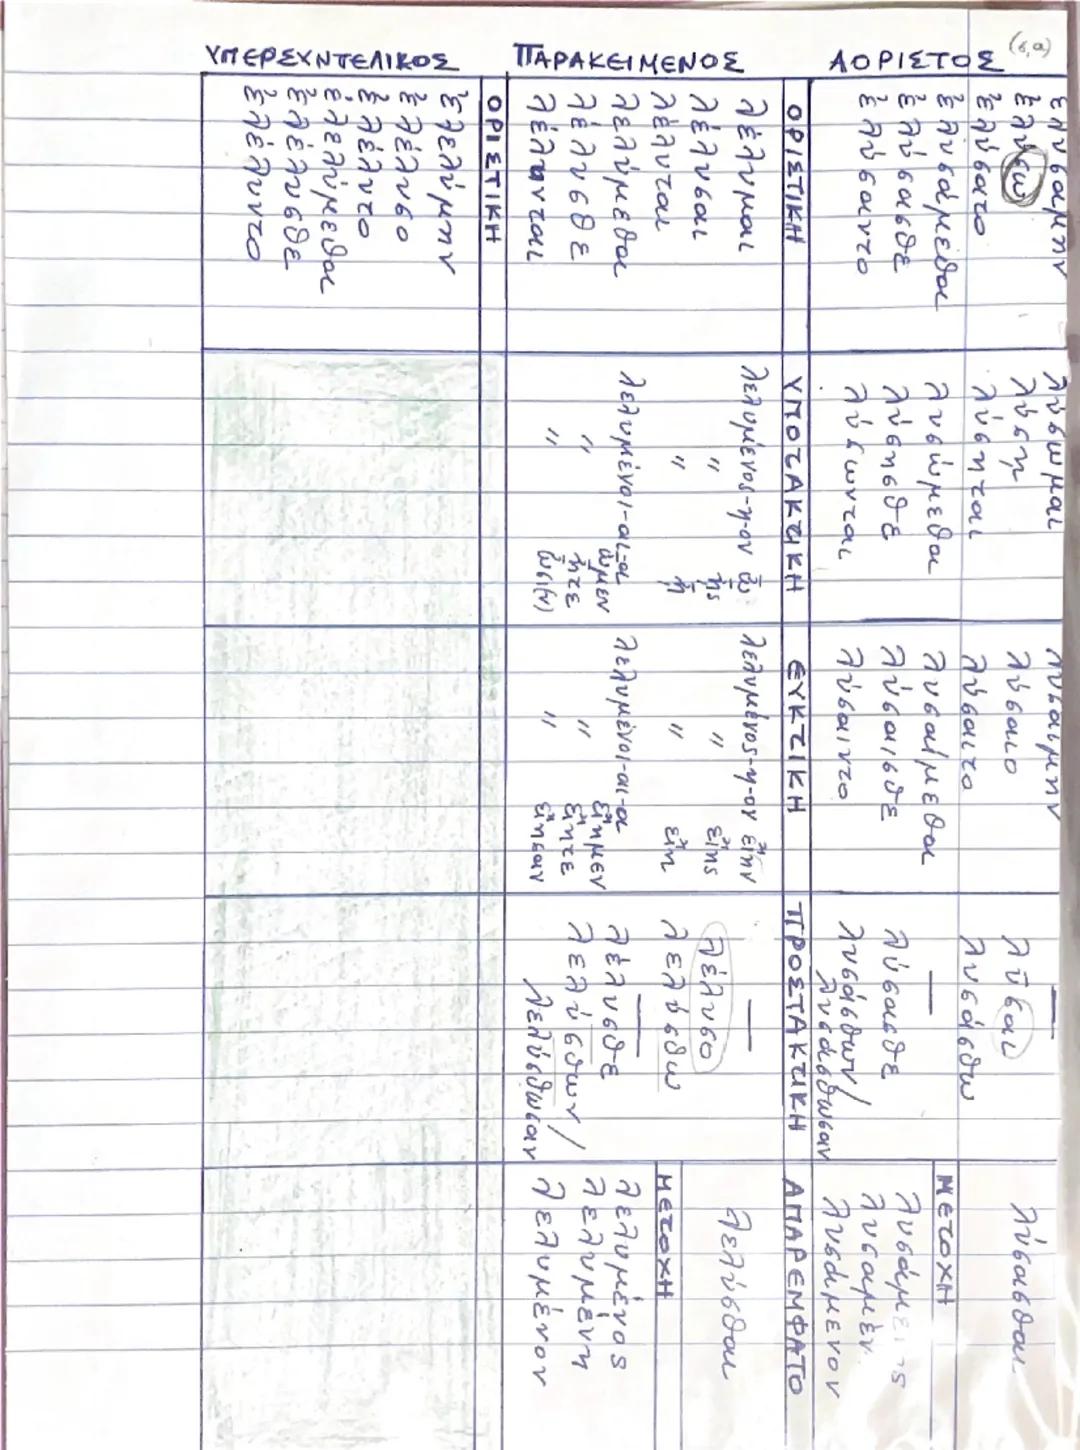 ΑΟΡΙΣΤΟΣ (σ,α)
ἐλυσάμην λύσωμαι λυσαίμην —
ἐλύσω λύσῃ λύσαιο λῦσαι λύσασθαι
ἐλύσατο λύσηται λύσαιτο λυσάσθω
ἐλυσάμεθα λυσώμεθα λυσαίμεθα — ΜΕΤΟΧΗ
ἐλύσασθε λύσησθε λύσαισθε λύσασθε λυσάμενος
ἐλύσαντο λύσωνται λύσαιντο λυσάσθων/ λυσαμένη
λυσάσθωσαν λυσάμενον
ΠΑΡΑΚΕΙΜΕΝΟΣ
ΟΡΙΣΤΙΚΗ ΥΠΟΤΑΚΤΙΚΗ ΕΥΚΤΙΚΗ ΠΡΟΣΤΑΚΤΙΚΗ ΑΠΑΡΕΜΦΑΤΟ
λέλυμαι λελυμένος-η-ον ὦ λελυμένος-η-ον εἴην —
λέλυσαι " ᾖς " εἴης λέλυσο λελύσθαι
λέλυται " ᾖ " εἴη λελύσθω ΜΕΤΟΧΗ
λελύμεθα λελυμένοι-αι-α ὦμεν λελυμένοι-αι-α εἴημεν — λελυμένος
λέλυσθε " ἦτε " εἴητε λέλυσθε λελυμένη
λέλυνται " ὦσι(ν) " εἴησαν λελύσθων/ λελυμένον
λελύσθωσαν
ΥΠΕΡΣΥΝΤΕΛΙΚΟΣ
ΟΡΙΣΤΙΚΗ
ἐλελύμην
ἐλέλυσο
ἐλέλυτο
ἐλελύμεθα
ἐλέλυσθε
ἐλέλυντο